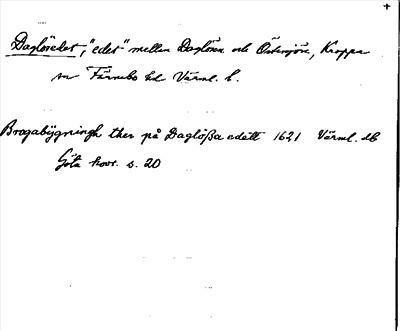 Daglösedet, "edet" mellan Daglösen och Östersjön, Kroppa
sn Färnebo hd Värml. l.
Bragabÿgningh ther på Daglößa edett 1621 Värml. db
Göta hovr. s. 20